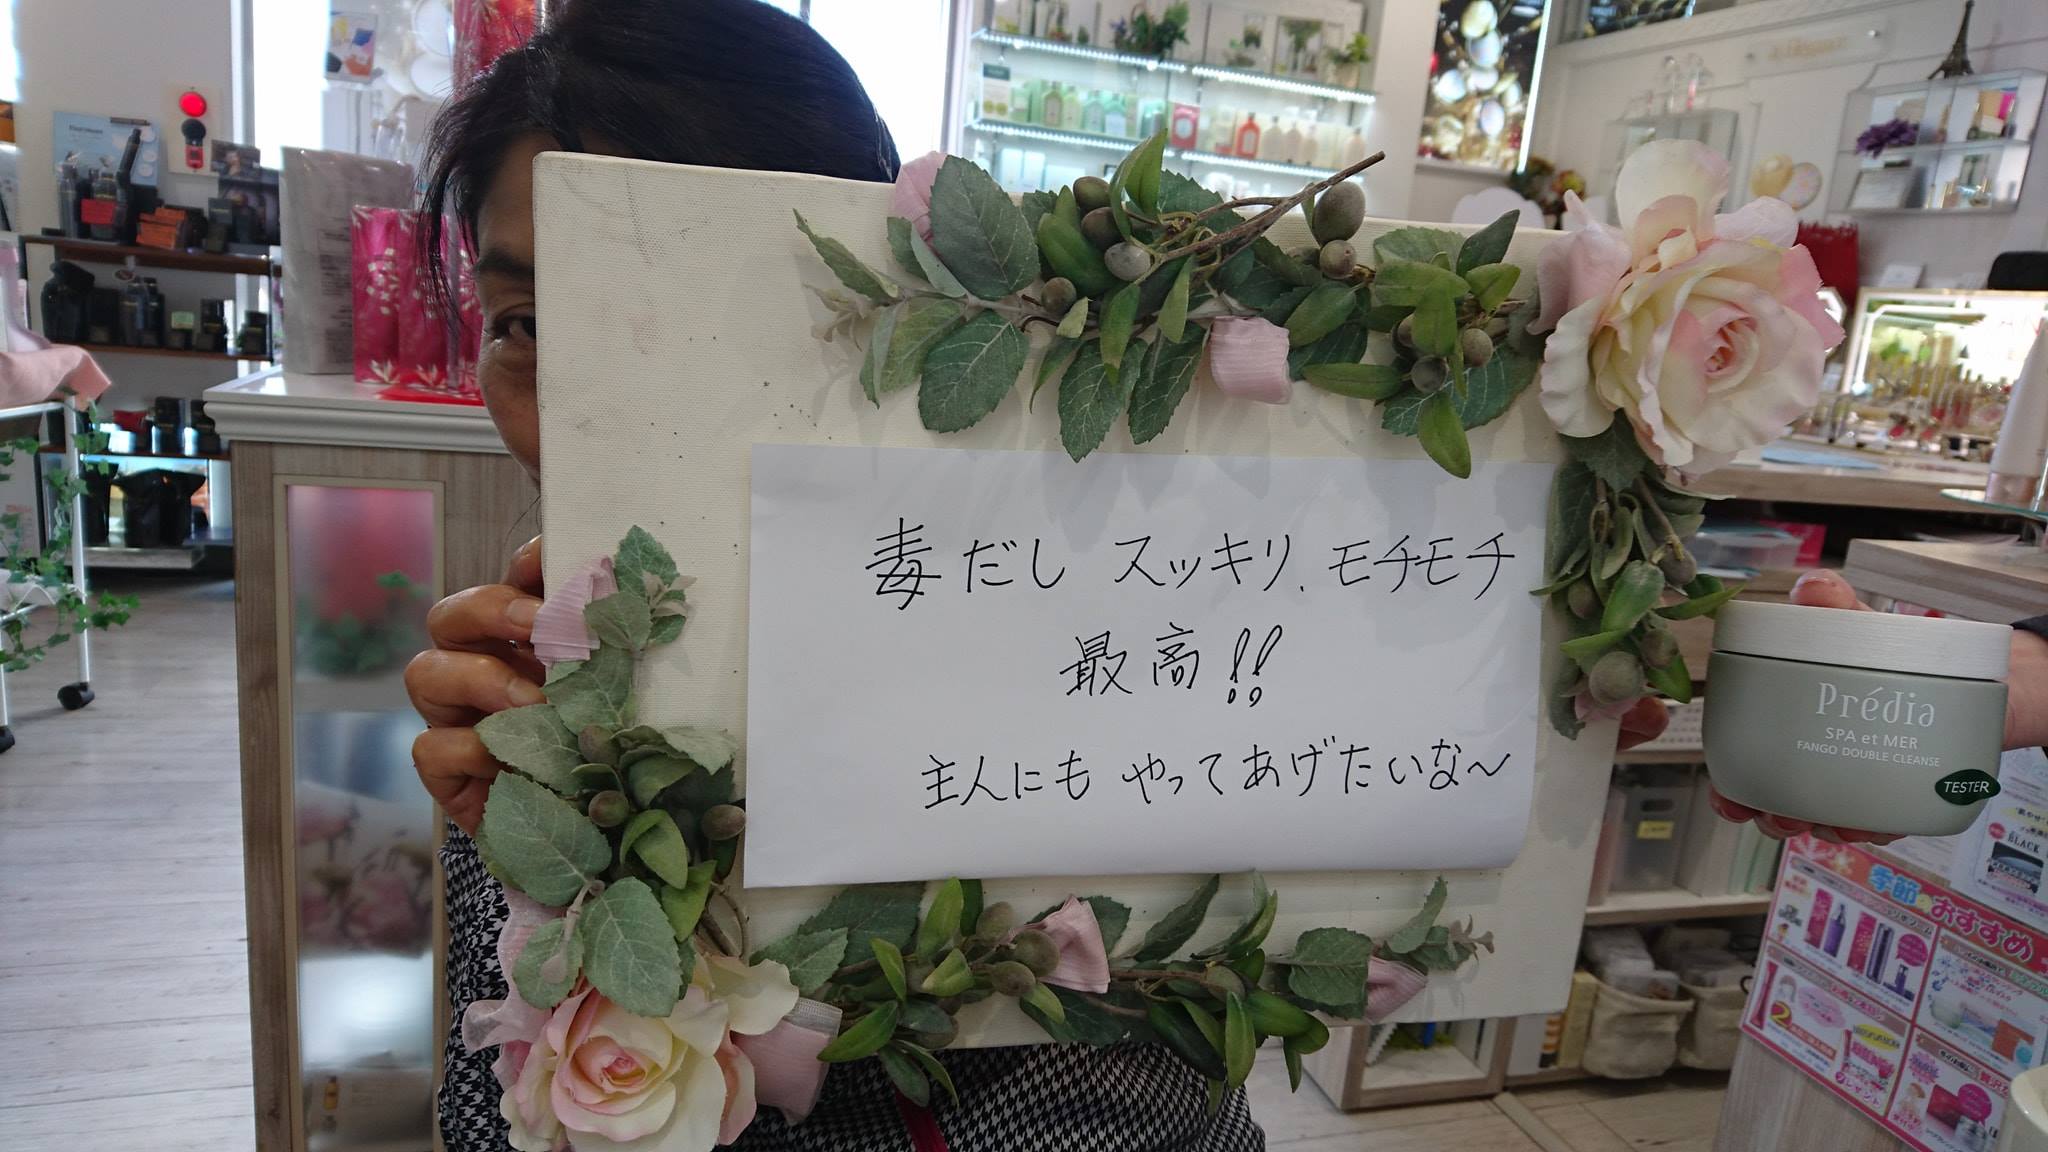 毒だし スッキリ、モチモチ
最高!!
主人にも やってあげたいな〜
Prédia
SPA et MER
FANGO DOUBLE CLEANSE
TESTER
BLACK
季節のおすすめ